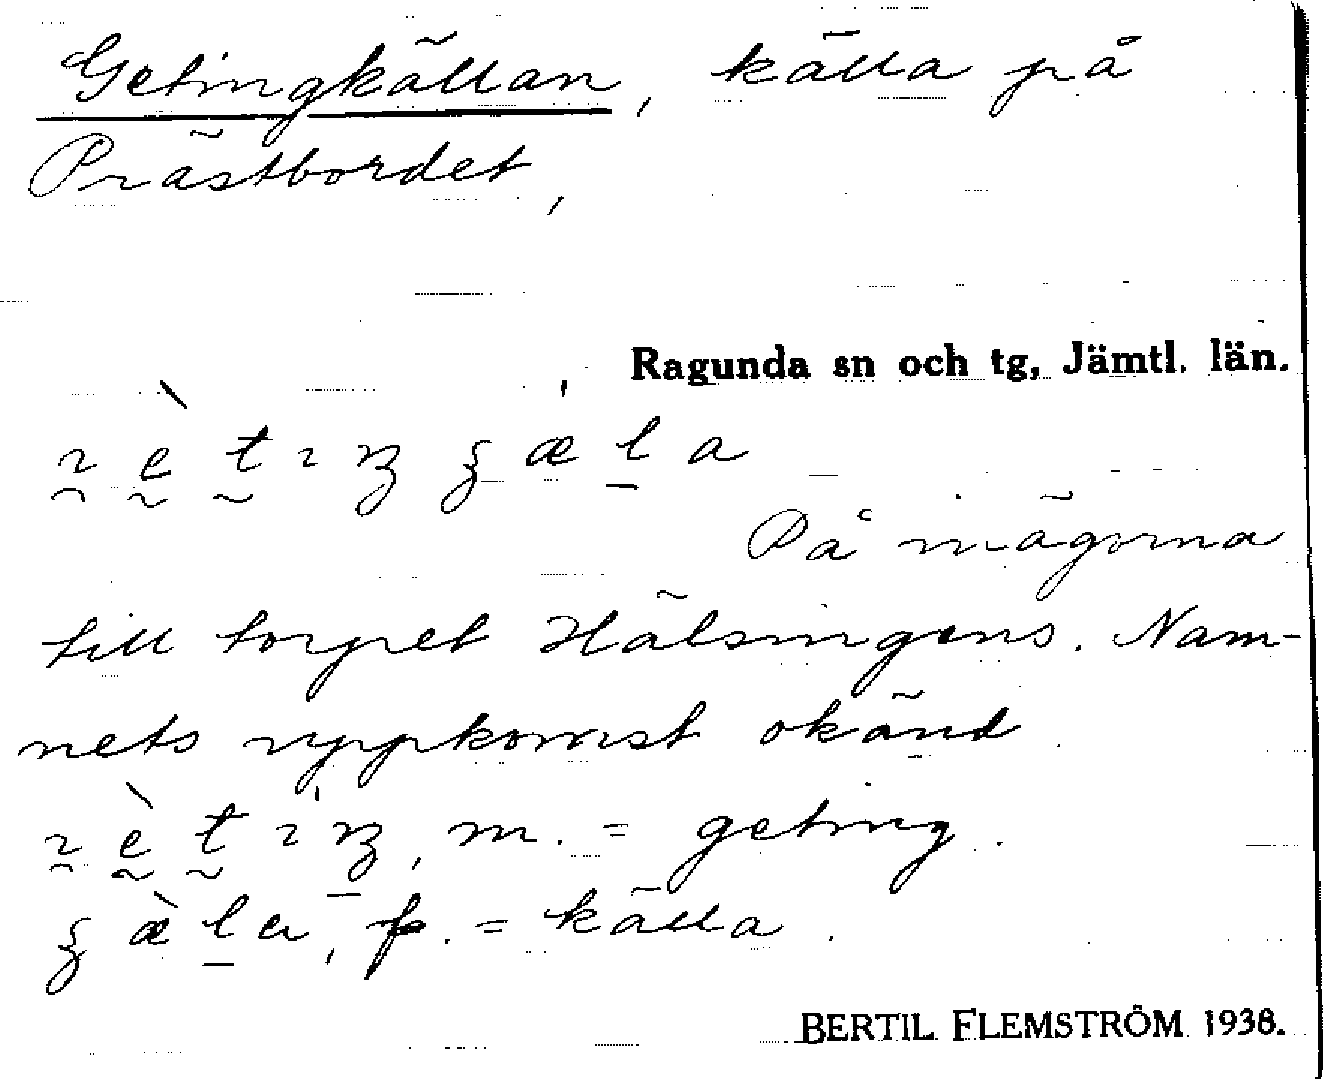 Getingkällan, källa på
Prästbordet,
Ragunda sn och tg, Jämtl. län.
På inägorna
till torpet Hälsingens. Nam-
nets uppkomst okänd
m. = geting.
f. = källa.
BERTIL FLEMSTRÖM 1938.